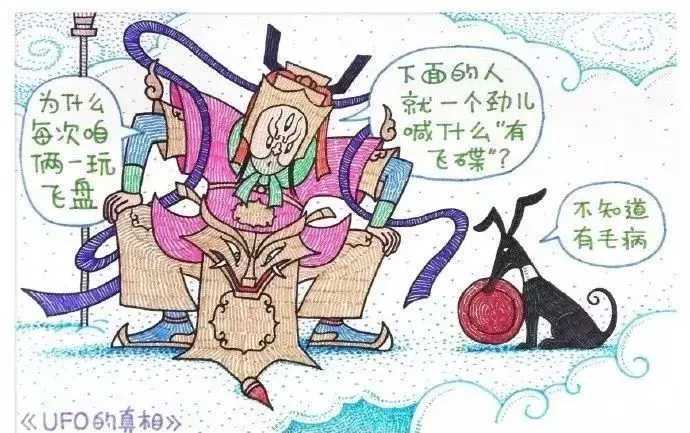 为什么
每次咱
俩一玩
飞盘
下面的人
就一个劲儿
喊什么"有
飞碟"?
不知道
有毛病
《UFO的真相》